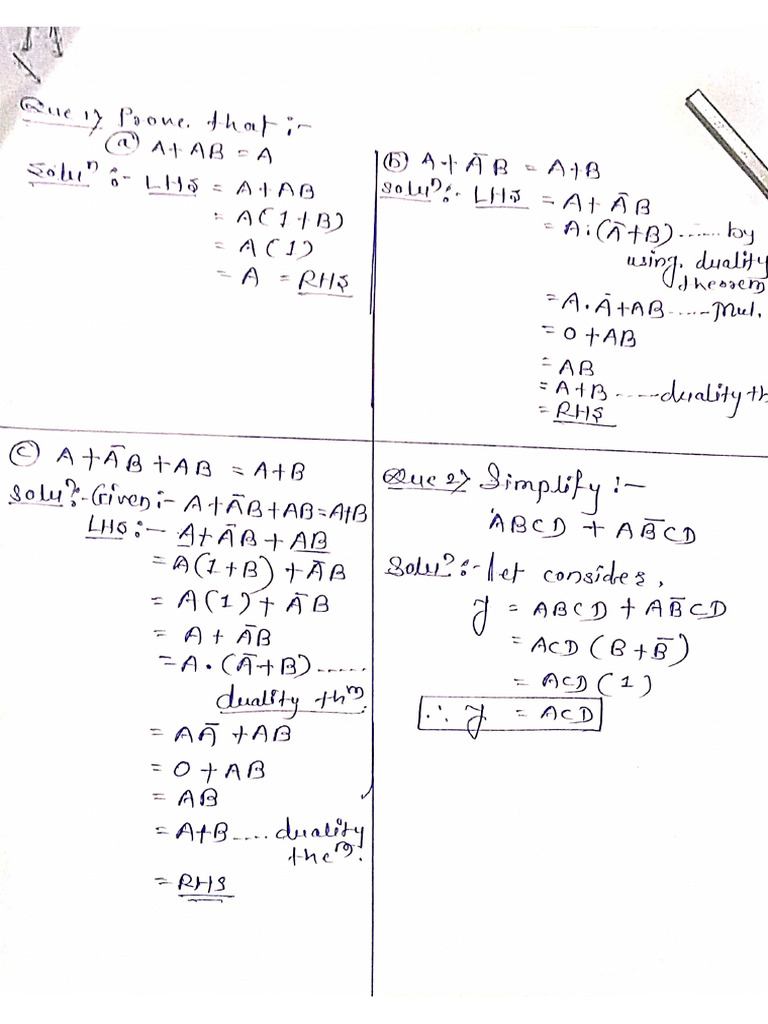 Que 1⟩ Proove. that :-
(a) A + AB = A
Soluⁿ :- LHS = A + AB
= A(1+B)
= A(1)
= A = RHS
(b) A + A̅B = A+B
Soluⁿ:- LHS = A + A̅B
= A.(A̅+B) ...... by
using. duality
theorem
= A.A̅+AB ......Mul.
= 0 + AB
= AB
= A+B .....duality th
= RHS
(c) A + A̅B + AB = A+B
Soluⁿ:- Given:- A+A̅B+AB=A+B
LHS :- A+A̅B+AB
= A(1+B) + A̅B
= A(1) + A̅B
= A + A̅B
= A.(A̅+B) ......
duality thᵐ.
= AA̅ + AB
= 0 + AB
= AB
= A+B ..... duality
theᵐ.
= RHS
Que 2⟩ Simplify :-
ABCD + AB̅CD
Soluⁿ:- let consider,
Y = ABCD + AB̅CD
= ACD (B+B̅)
= ACD (1)
∴ Y = ACD